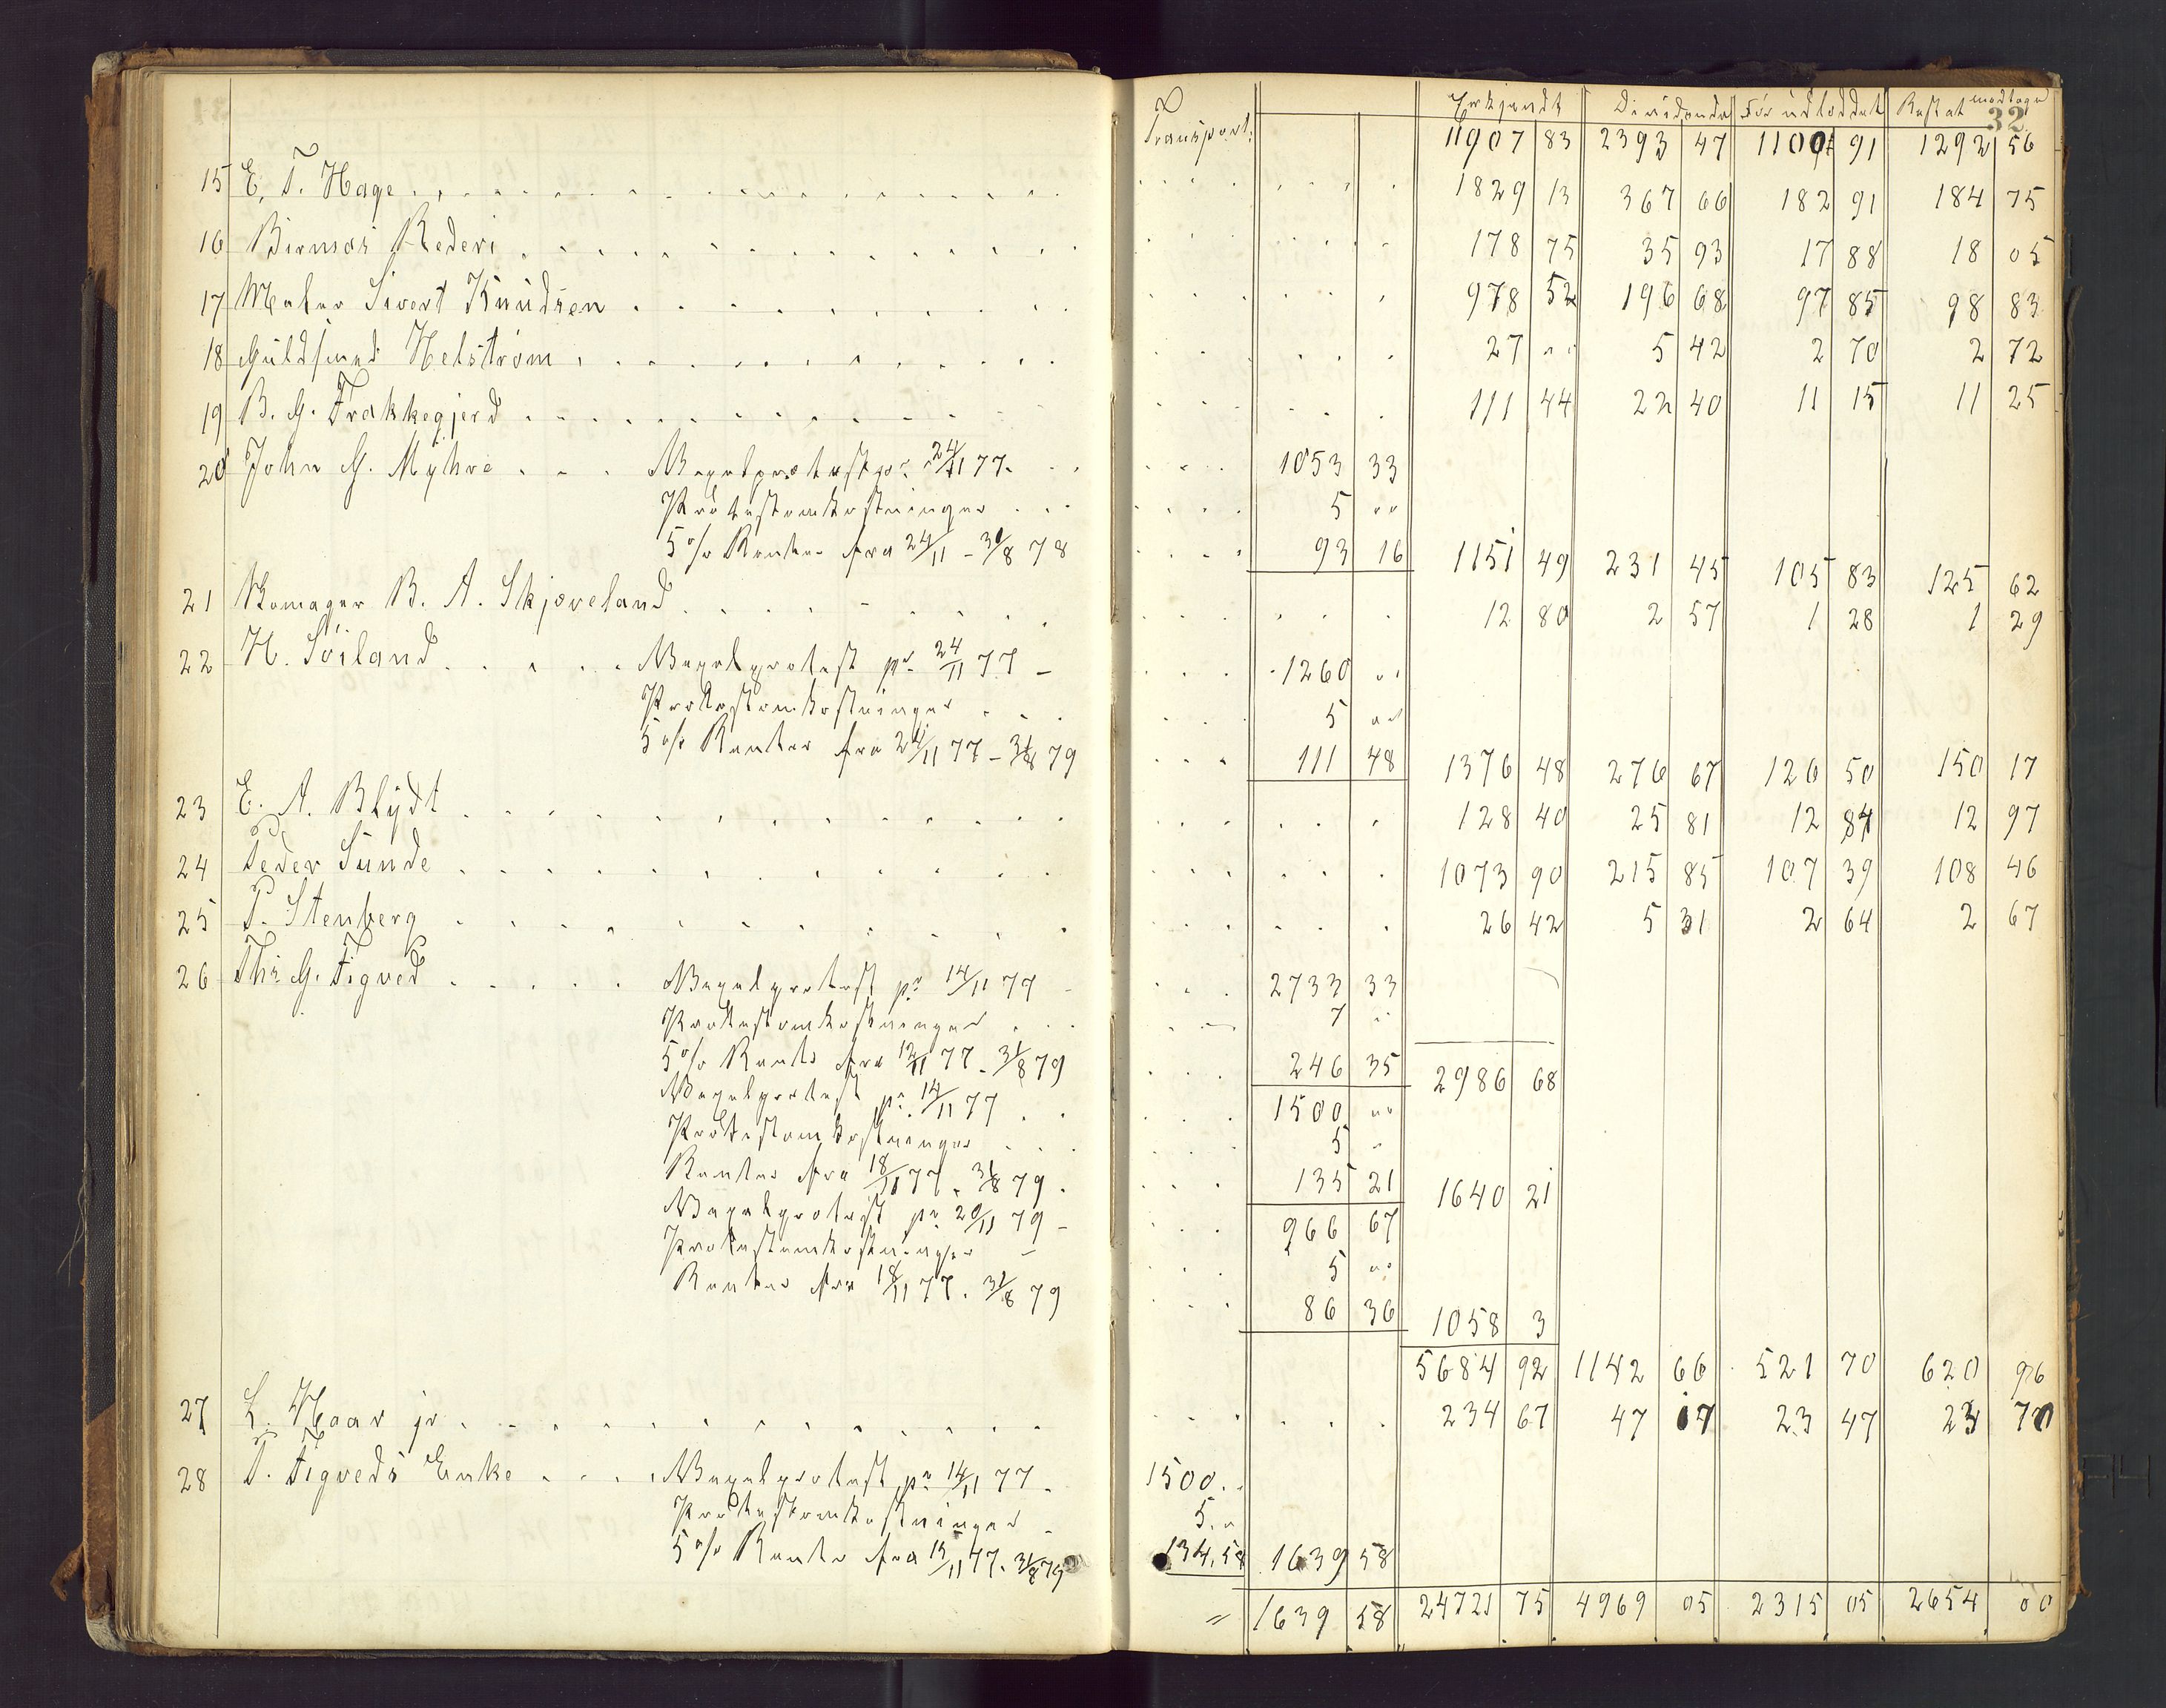 Erkjendt Dividende Før udloddet Restat modtage
32
Transport: 11907 83 2393 47 1100 91 1292 56
15 E. T. Hage 1829 13 367 66 182 91 184 75
16 Birmos Rederi 178 75 35 93 17 88 18 05
17 Maler Sivert Knudsen 978 52 196 68 97 85 98 83
18 Guldsmed Helstrøm 27 " 5 42 2 70 2 72
19 B. G. Trakkegjerd 111 44 22 40 11 15 11 25
20 John G. Myhre Vexelprotest pr 24/11 77 1053 33
Protestomkostninger 5 "
5 o/o Renter fra 24/11 - 31/8 78 93 16 1151 49 231 45 105 83 125 62
21 Komager B. A. Skjæveland 12 80 2 57 1 28 1 29
22 H. Söiland Vexelprotest pr 24/11 77 1260 "
Protestomkostninger 5 "
5 o/o Renter fra 24/11 77 - 31/8 79 111 48 1376 48 276 67 126 50 150 17
23 E. A. Blydt 128 40 25 81 12 84 12 97
24 Peder Sunde 1073 90 215 85 107 39 108 46
25 P. Stenberg 26 42 5 31 2 64 2 67
26 Ths G. Tigved Vexelprotest pr 14/11 77 2733 33
Protestomkostninger 7 "
5 o/o Rente fra 12/11 77 - 31/8 79 246 35 2986 68
Vexelprotest pr 14/11 77 1500 "
Protestomkostninger 5 "
Renter fra 18/11 77 - 31/8 79 135 21 1640 21
Vexelprotest pr 20/11 79 966 67
Protestomkostninger 5 "
Renter fra 18/11 77 - 31/8 79 86 36 1058 3
5684 92 1142 66 521 70 620 96
27 L. Haar jr 234 67 47 17 23 47 23 70
28 T. Tigveds Enke Vexelprotest pr 14/11 77 1500
Protestomkostninger 5 "
5 o/o Rente fra 15/11 77 - 31/8 79 134,58 1639 58
" 1639 58 24721 75 4969 05 2315 05 2654 00